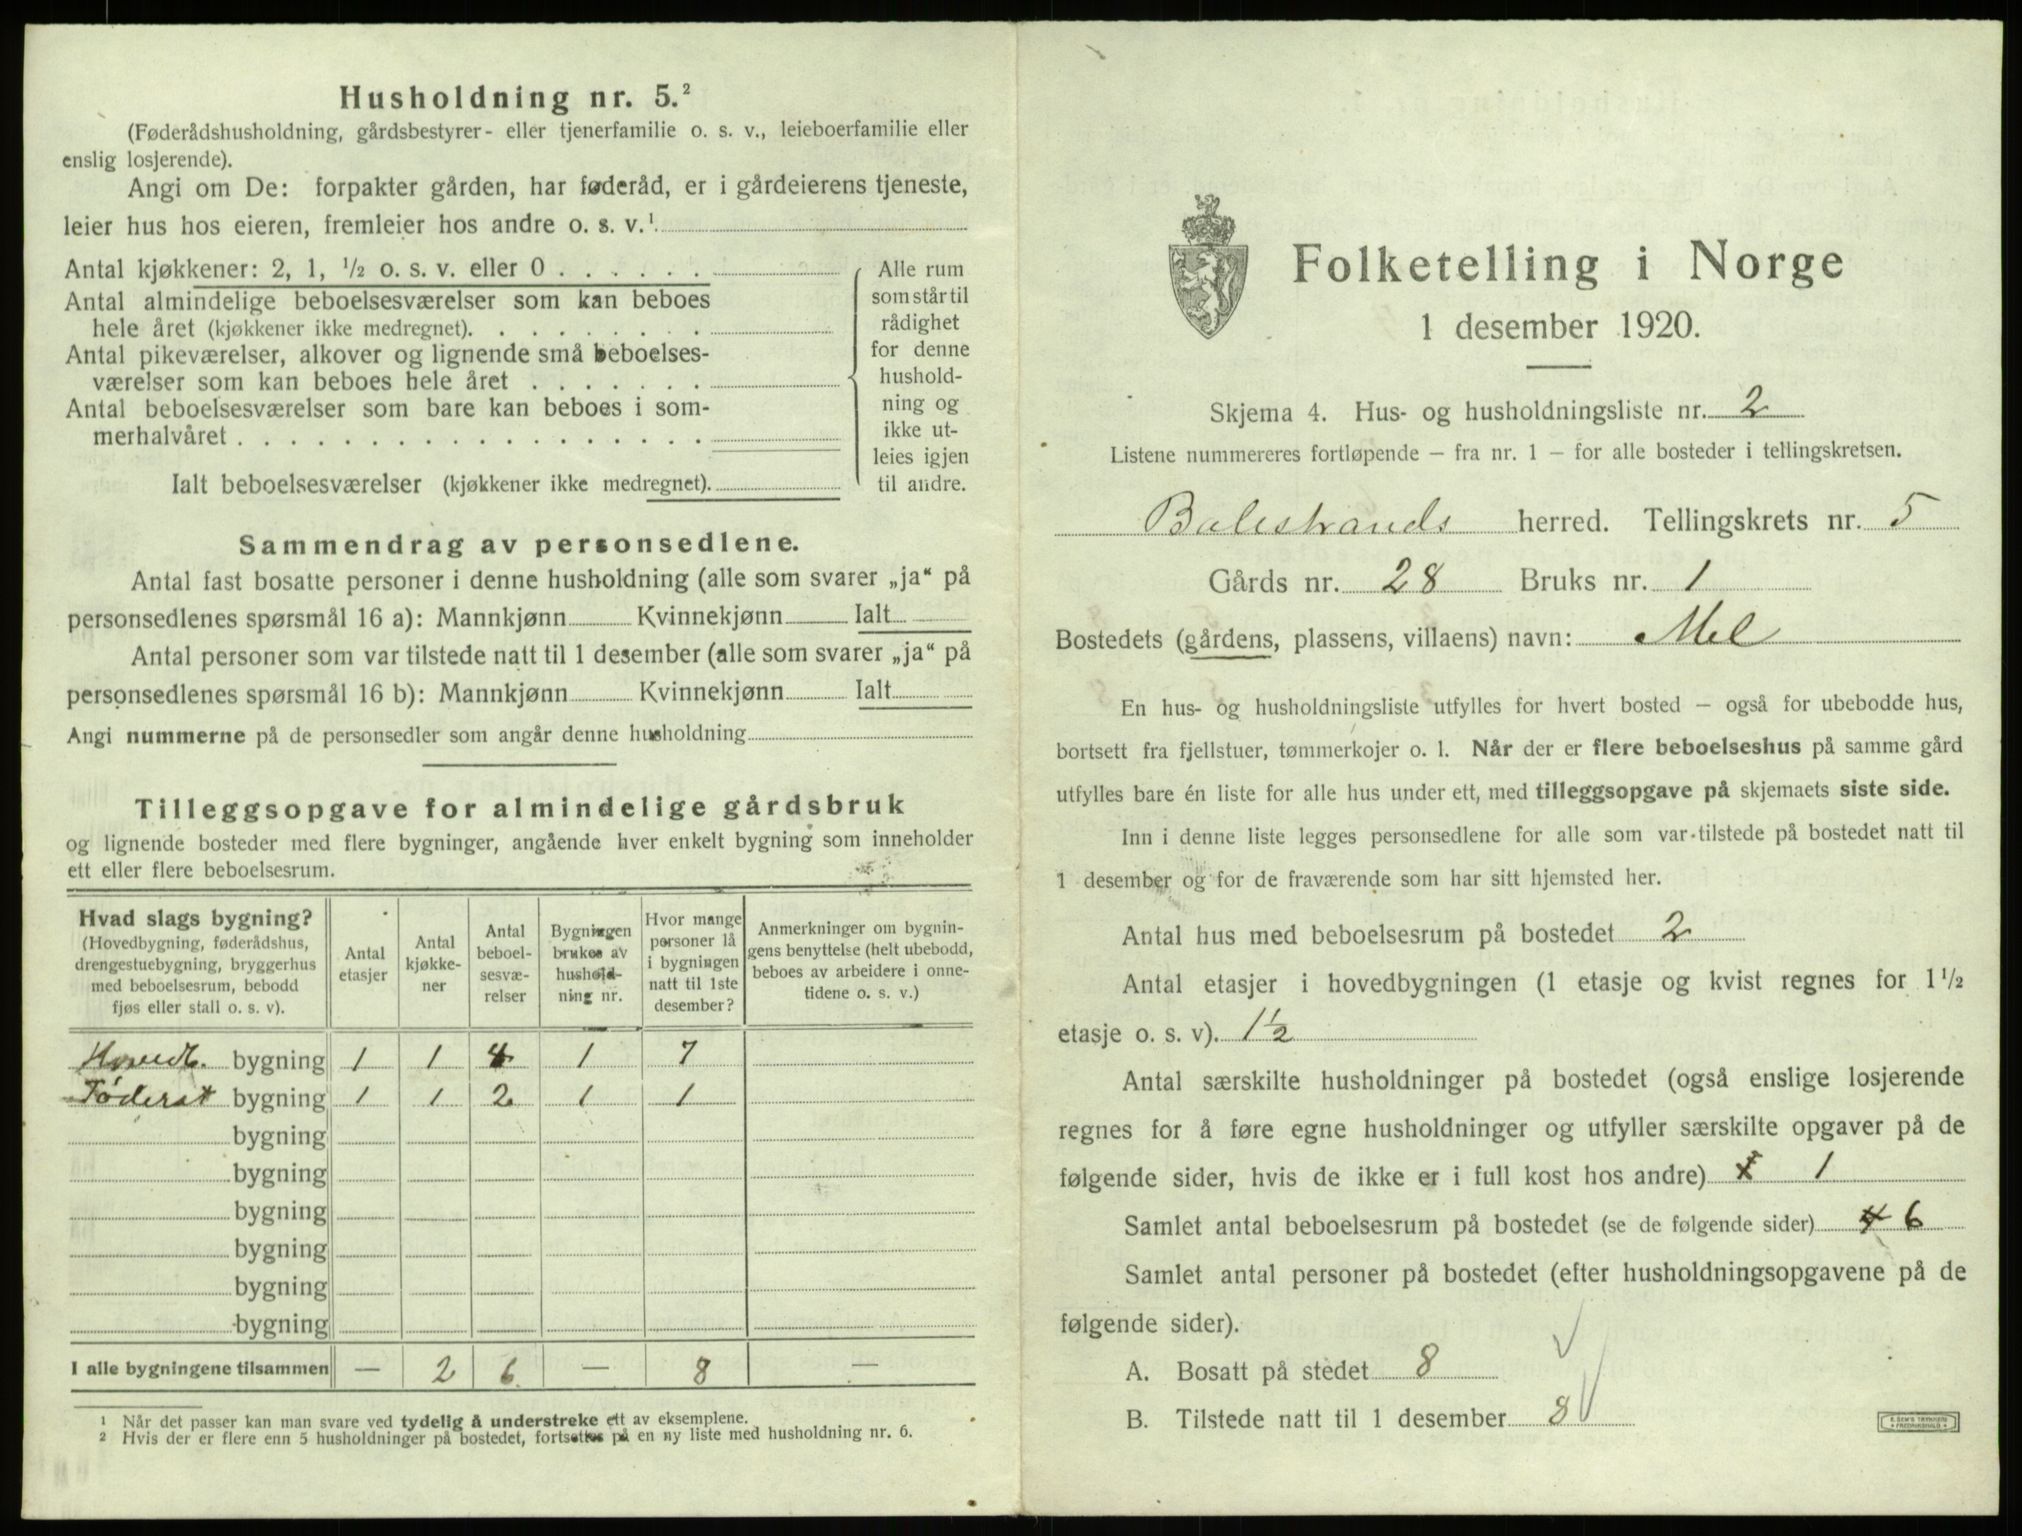 Husholdning nr. 5.²
(Føderådshusholdning, gårdsbestyrer- eller tjenerfamilie o. s. v., leieboerfamilie eller
enslig losjerende).
Angi om De: forpakter gården, har føderåd, er i gårdeierens tjeneste,
leier hus hos eieren, fremleier hos andre o. s. v.¹
Antal kjøkkener: 2, 1, ½ o. s. v. eller 0 . . . . . .
Antal almindelige beboelsesværelser som kan beboes
hele året (kjøkkener ikke medregnet). . . . . . . . .
Antal pikeværelser, alkover og lignende små beboelses-
værelser som kan beboes hele året . . . . . . .
Antal beboelsesværelser som bare kan beboes i som-
merhalvåret . . . . . . . . . . . . . . . . . .
Ialt beboelsesværelser (kjøkkener ikke medregnet).
Alle rum
som står til
rådighet
for denne
hushold-
ning og
ikke ut-
leies igjen
til andre.
Sammendrag av personsedlene.
Antal fast bosatte personer i denne husholdning (alle som svarer „ja“ på
personsedlenes spørsmål 16 a): Mannkjønn Kvinnekjønn Ialt
Antal personer som var tilstede natt til 1 desember (alle som svarer „ja“ på
personsedlenes spørsmål 16 b): Mannkjønn Kvinnekjønn Ialt
Angi nummerne på de personsedler som angår denne husholdning
Tilleggsopgave for almindelige gårdsbruk
og lignende bosteder med flere bygninger, angående hver enkelt bygning som inneholder
ett eller flere beboelsesrum.
Hvad slags bygning?
(Hovedbygning, føderådshus,
drengestuebygning, bryggerhus
med beboelsesrum, bebodd
fjøs eller stall o. s. v).
Antal
etasjer
Antal
kjøkke-
ner
Antal
beboel-
sesvæ-
relser
Bygningen
brukes av
hushold-
ning nr.
Hvor mange
personer lå
i bygningen
natt til 1ste
desember?
Anmerkninger om bygnin-
gens benyttelse (helt ubebodd,
beboes av arbeidere i onne-
tidene o. s. v.)
Hovedb. bygning 1 1 4 1 7
Føderåt bygning 1 1 2 1 1
bygning
bygning
bygning
bygning
bygning
bygning
I alle bygningene tilsammen — 2 6 — 8 —
¹ Når det passer kan man svare ved tydelig å understreke ett av eksemplene.
² Hvis der er flere enn 5 husholdninger på bostedet, fortsettes på en ny liste med husholdning nr. 6.
Folketelling i Norge
1 desember 1920.
Skjema 4. Hus- og husholdningsliste nr. 2
Listene nummereres fortløpende — fra nr. 1 — for alle bosteder i tellingskretsen.
Balestrands herred. Tellingskrets nr. 5
Gårds nr. 28 Bruks nr. 1
Bostedets (gårdens, plassens, villaens) navn: Mel
En hus- og husholdningsliste utfylles for hvert bosted — også for ubebodde hus,
bortsett fra fjellstuer, tømmerkojer o. l. Når der er flere beboelseshus på samme gård
utfylles bare én liste for alle hus under ett, med tilleggsopgave på skjemaets siste side.
Inn i denne liste legges personsedlene for alle som var tilstede på bostedet natt til
1 desember og for de fraværende som har sitt hjemsted her.
Antal hus med beboelsesrum på bostedet 2
Antal etasjer i hovedbygningen (1 etasje og kvist regnes for 1½
etasje o. s. v). 1½
Antal særskilte husholdninger på bostedet (også enslige losjerende
regnes for å føre egne husholdninger og utfyller særskilte opgaver på de
følgende sider, hvis de ikke er i full kost hos andre) 1
Samlet antal beboelsesrum på bostedet (se de følgende sider) 4 6
Samlet antal personer på bostedet (efter husholdningsopgavene på de
følgende sider).
A. Bosatt på stedet 8
B. Tilstede natt til 1 desember 8